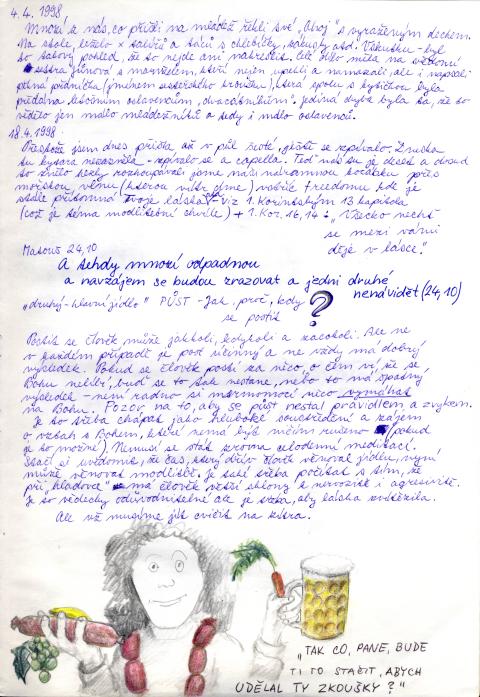 4. 4. 1998
Mnozí z nás, co přišli na mládež řekli své "Ahoj" s vyraženým dechem.
Na stole leželo x talířů a táců s chlebíčky, zákusky atd. Vskutku - byl
to takový pohled, že to nejde ani nakreslit. Celé dílo měla na svědomí
sestra s manželem, kteří nejen upekli a namazali ale i napsali
pěkná přáníčka (jménem sesterského kroužku), která spolu s kytičkou byla
předána letošním oslavencům, dvacátníkům. Jediná chyba byla ta, že to
vědělo jen málo mládežníků a tedy i málo oslavenců.
18. 4. 1998
Přestože jsem dnes přišla až v půl šesté, ještě se zpívalo. Zrucka
tu kytara nezazněla - zpívalo se a capella. Teď nás tu je deset a dosud
to znělo hezky rozhoupávali jsme naši nádrammou kocábku přes
mořskou vlnu (kterou vítr žene) vstříc Freedomu kde je
stále přítomná Tvoje láska - viz 1. Korintským 13 kapitola
(což je téma modlitební chvíle) + 1. Kor. 16, 14: "Všecko nechť
se mezi vámi
děje v lásce."
Matouš 24,10
A tehdy mnozí odpadnou
a navzájem se budou zrazovat a jedni druhé
nenávidět (24,10)
"druhý - hlavní jídlo" PŮST - Jak, proč, kdy
se postit ?
Postit se člověk může jakkoli, kdykoli a zacokoli. Ale ne
v každém případě je půst účinný a ne vždy má dobrý
výsledek. Pokud se člověk postí za něco, o čem ví, že se
Bohu nelíbí, buď se to tak nestane, nebo to má špatný
výsledek - není radno si mermomocí něco vymáhat
na Bohu. Pozor na to, aby se půst nestal pravidlem a zvykem.
Je to třeba chápat jako hluboké soustředění a zájem
o vztah s Bohem, které nemá být ničím rušeno (pokud
je to možné). Nemusí se stát zrovna celodenní meditací.
Stačí si uvědomit, že čas, který dřív člověk věnoval jídlu, nyní
může věnovat modlitbě, je také třeba počítat s tím, že
při "hladovce" má člověk větší sklony k nervozitě i agresivitě.
Je to vědecky odůvodnitelné ale je třeba, aby láska zvítězila.
Ale už musíme jít cvičit na zítra.
"TAK CO, PANE, BUDE
TI TO STAČIT, ABYCH
UDĚLAL TY ZKOUŠKY?"